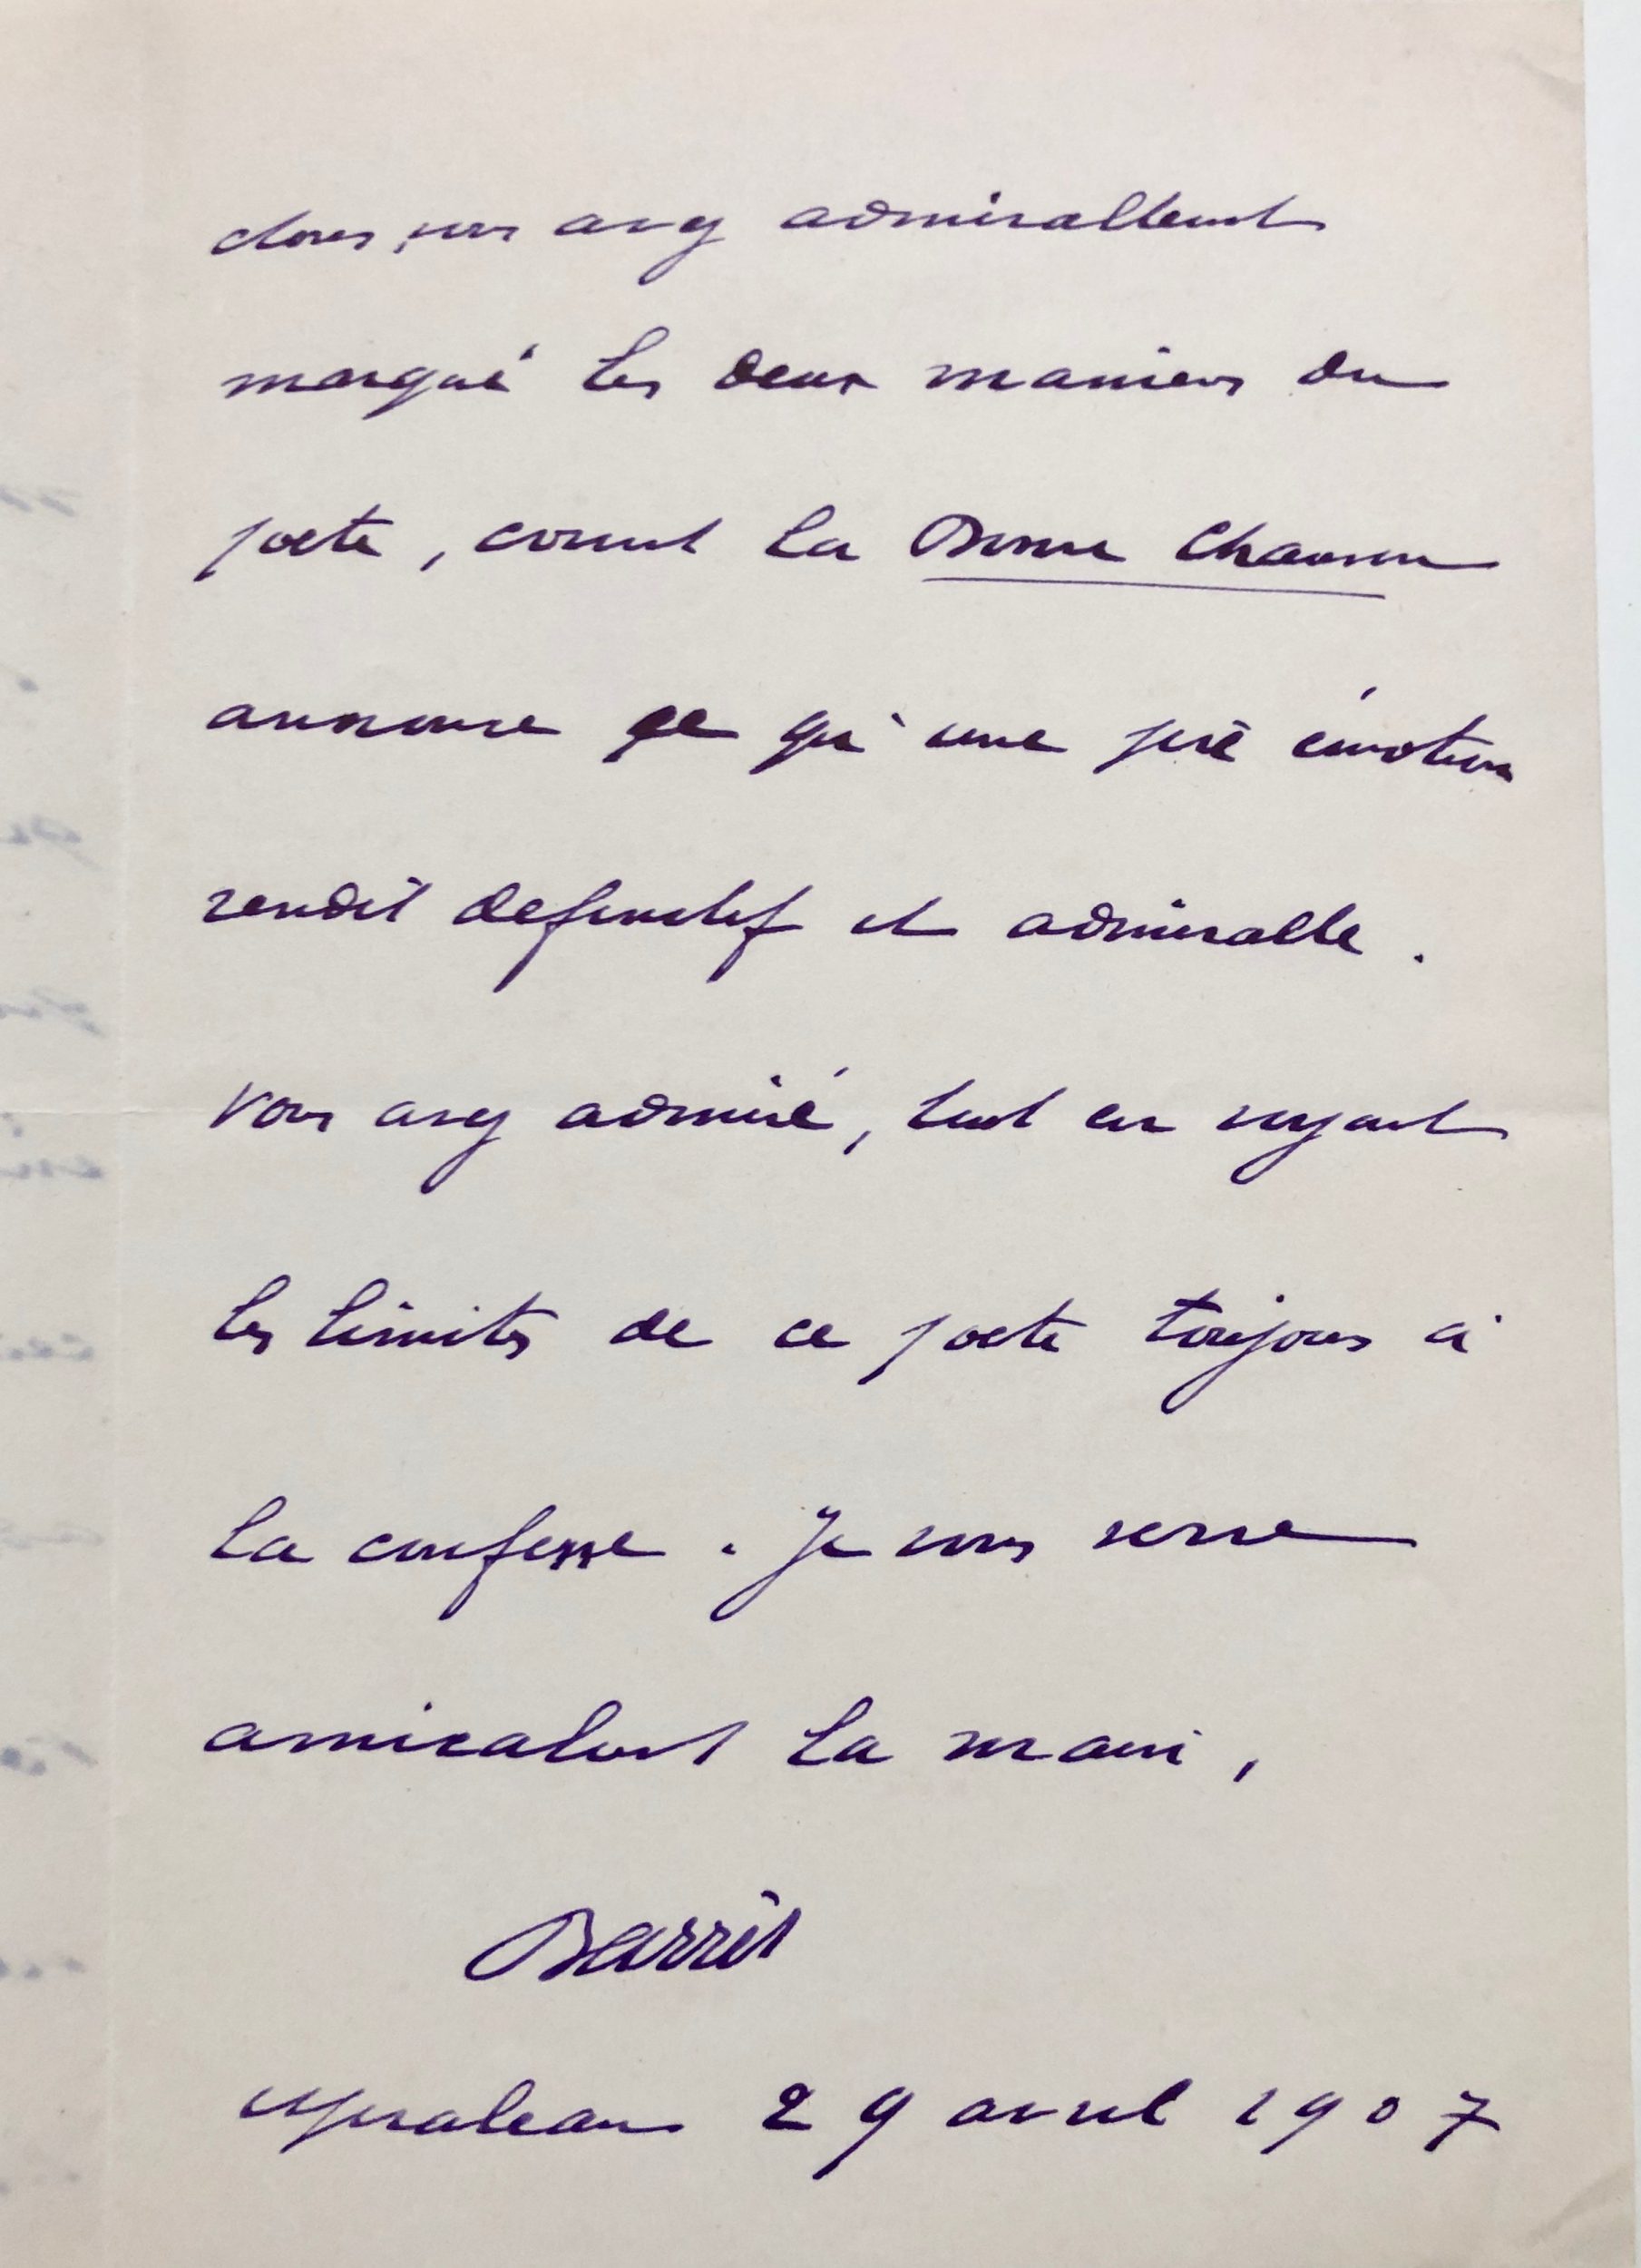 vous avez admirablement
marqué les deux manières du
poète, comment la Bonne Chanson
annonce ce qu'une émotion
rendit definitif et admirable.
Vous avez admiré, tout en voyant
les limites de ce poete toujours à
la confesse. Je vous serre
amicalement la main,
Barrès
Mirabeau 29 avril 1907